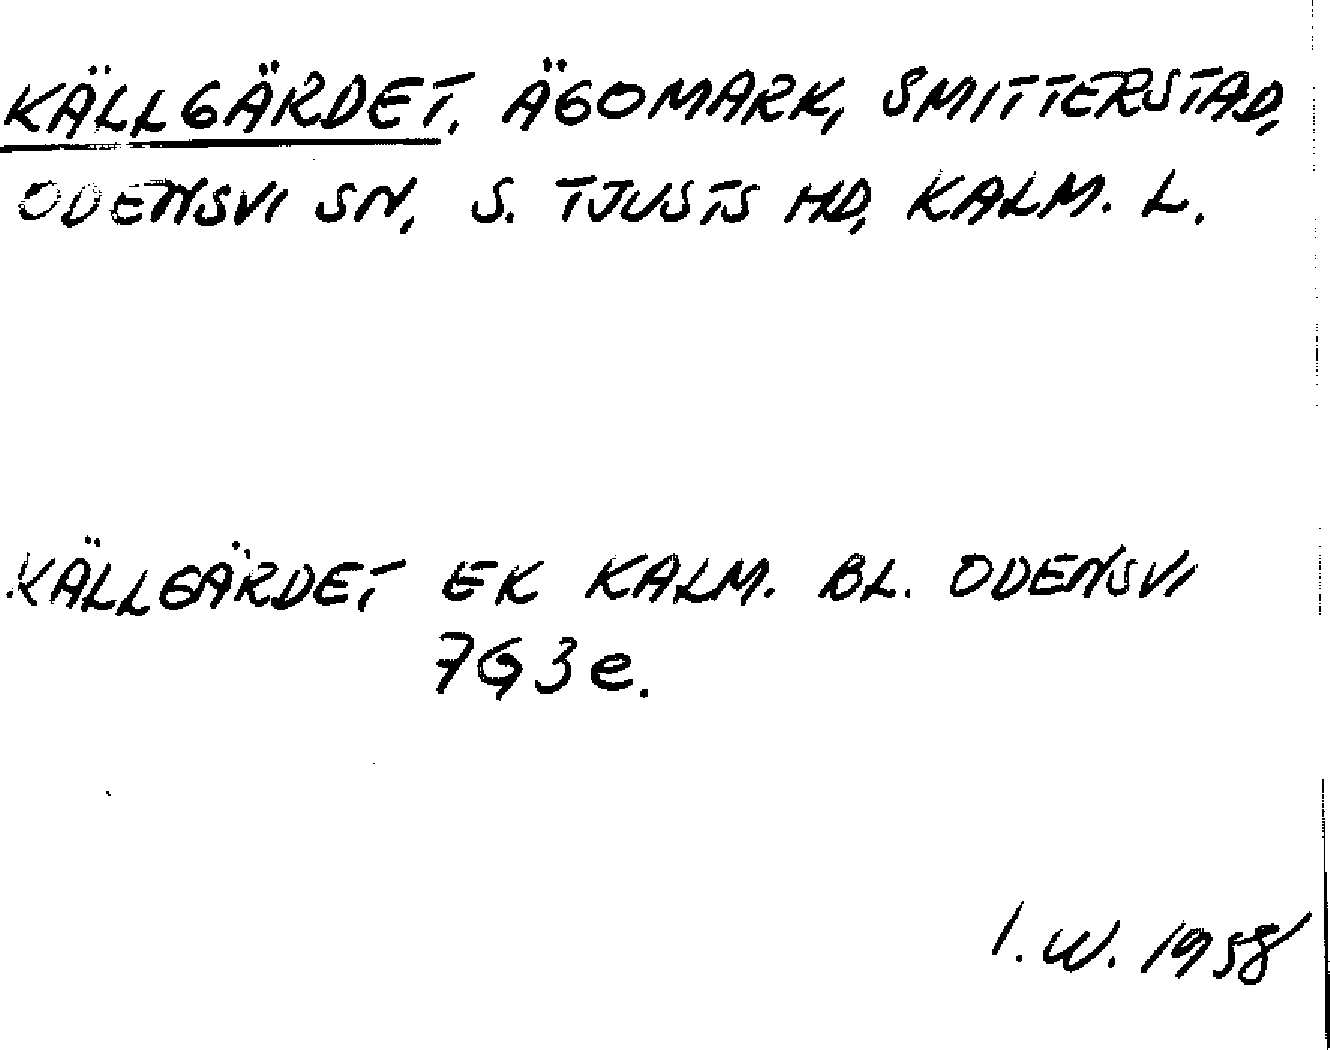 KÄLLGÄRDET. ÄGOMARK, SMITTERSTAD,
ODENSVI SN, S. TJUSTS HD, KALM. L.
KÄLLGÄRDET EK KALM. BL. ODENSVI
7G3e.
I.W. 1958